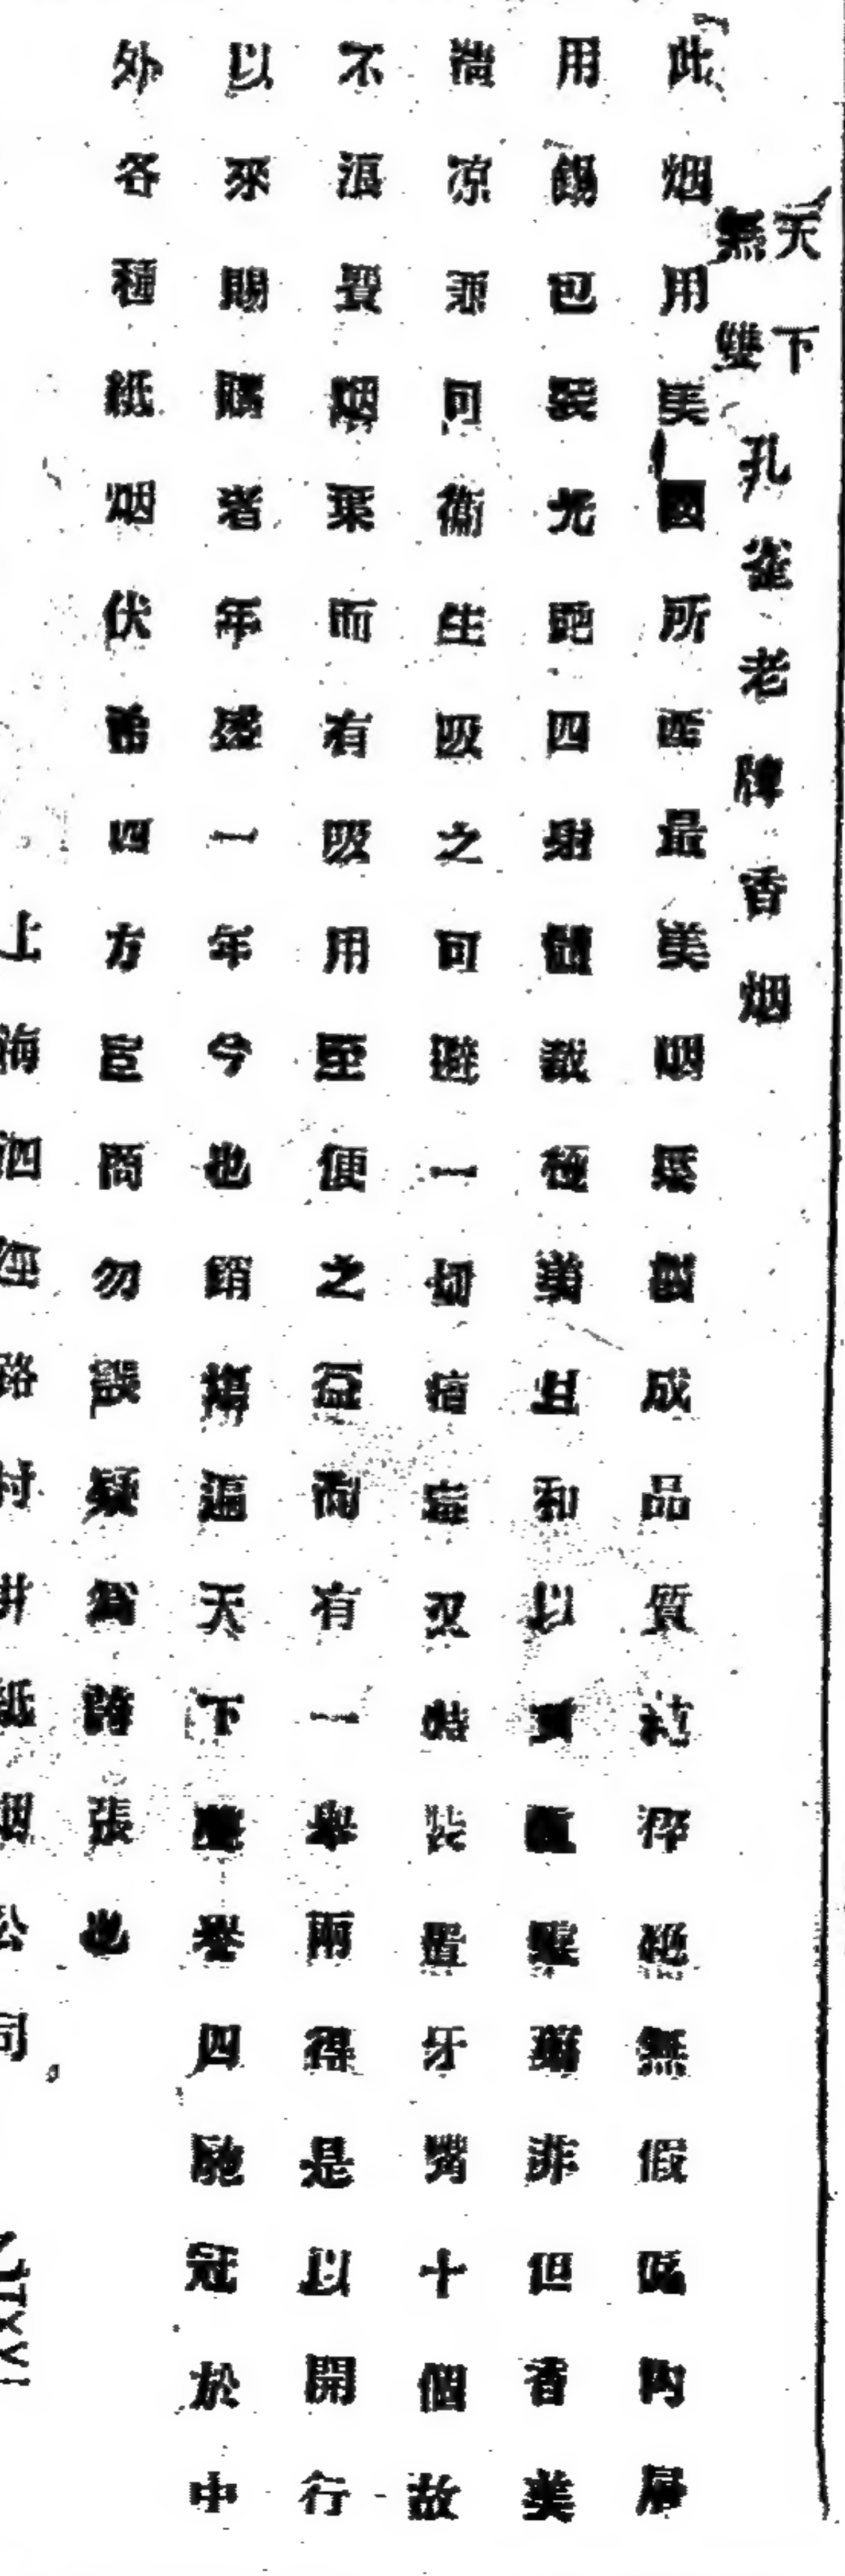 天下
無雙
孔雀老牌香烟
此烟用美國所產最美烟葉製成品質純淨絕無假偽內層
用錫包裝光艷四射體裁極美甘和以質麝非但香美
清凉兼可衛生吸之可避一切瘴毒及特裝置牙嘴十個故
不浪費烟葉而有吸用至便之益而有一舉兩得是以開行
以來賜購者年盛一年今也銷塲遍天下譽四馳冠於中
外各種紙烟伏希四方宦商勿誤疑爲誇張也
上海泗涇路村井紙烟公司